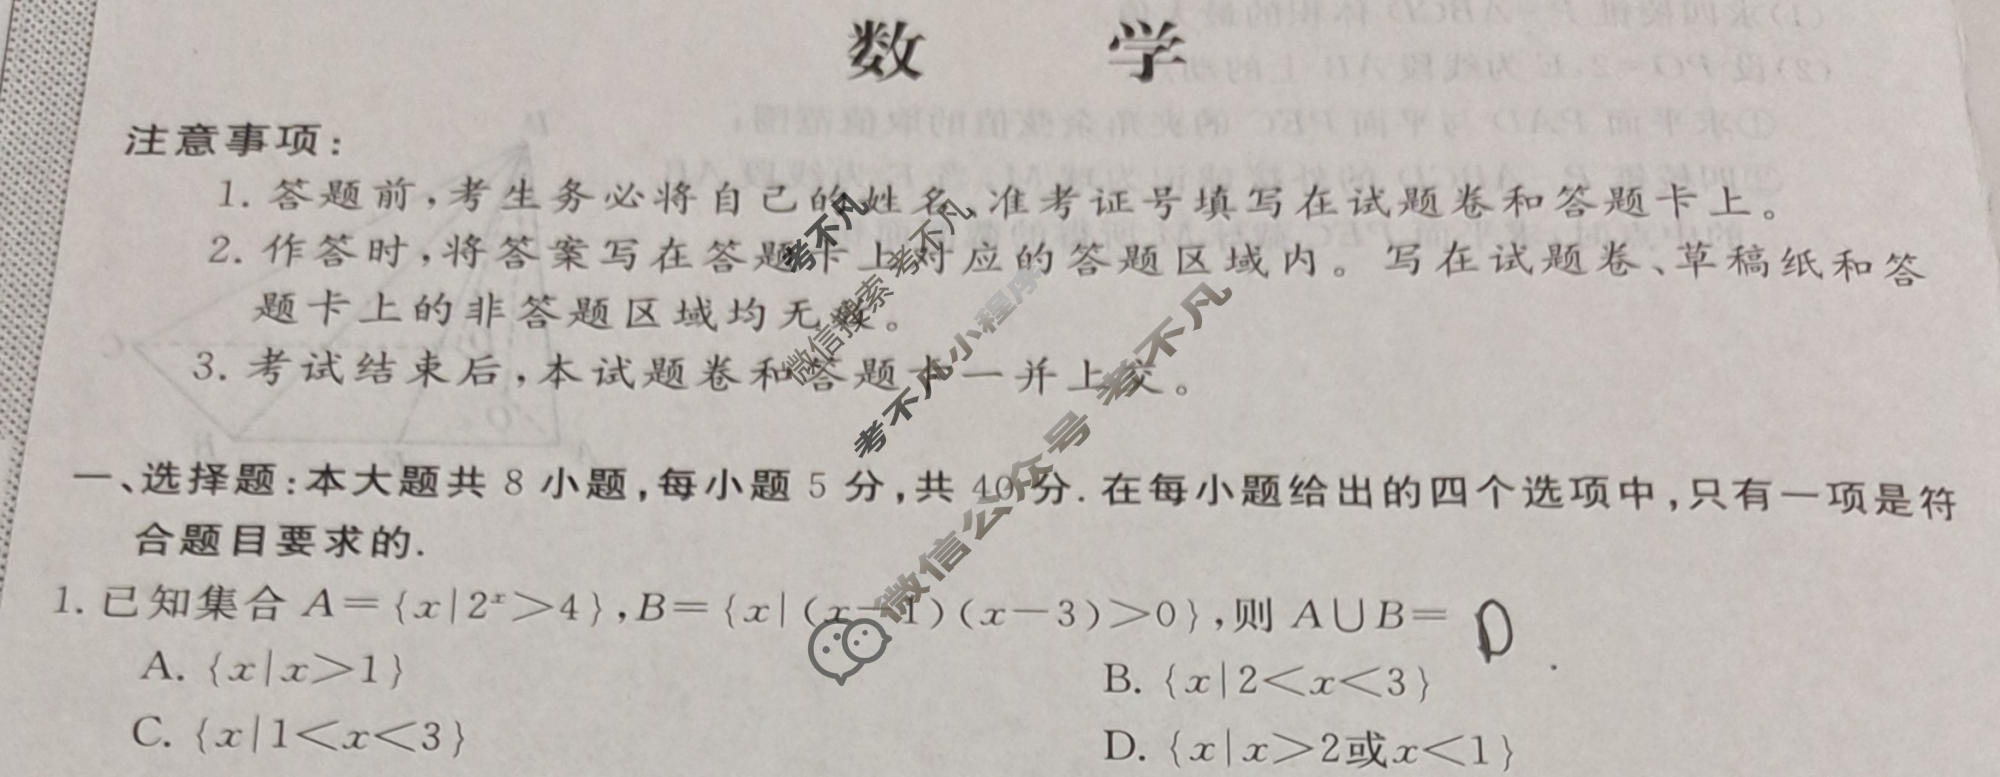 数 学
注意事项:
1. 答题前,考生务必将自己的姓名、准考证号填写在试题卷和答题卡上。
2. 作答时,将答案写在答题卡上对应的答题区域内。写在试题卷、草稿纸和答
题卡上的非答题区域均无效。
3. 考试结束后,本试题卷和答题卡一并上交。
考不凡
微信搜索 考不凡
考不凡小程序
微信公众号 考不凡
一、选择题:本大题共 8 小题,每小题 5 分,共 40 分. 在每小题给出的四个选项中,只有一项是符
合题目要求的.
1. 已知集合 A={x|2ˣ>4},B={x|(x-1)(x-3)>0},则 A∪B= D
A. {x|x>1}
B. {x|2<x<3}
C. {x|1<x<3}
D. {x|x>2或x<1}